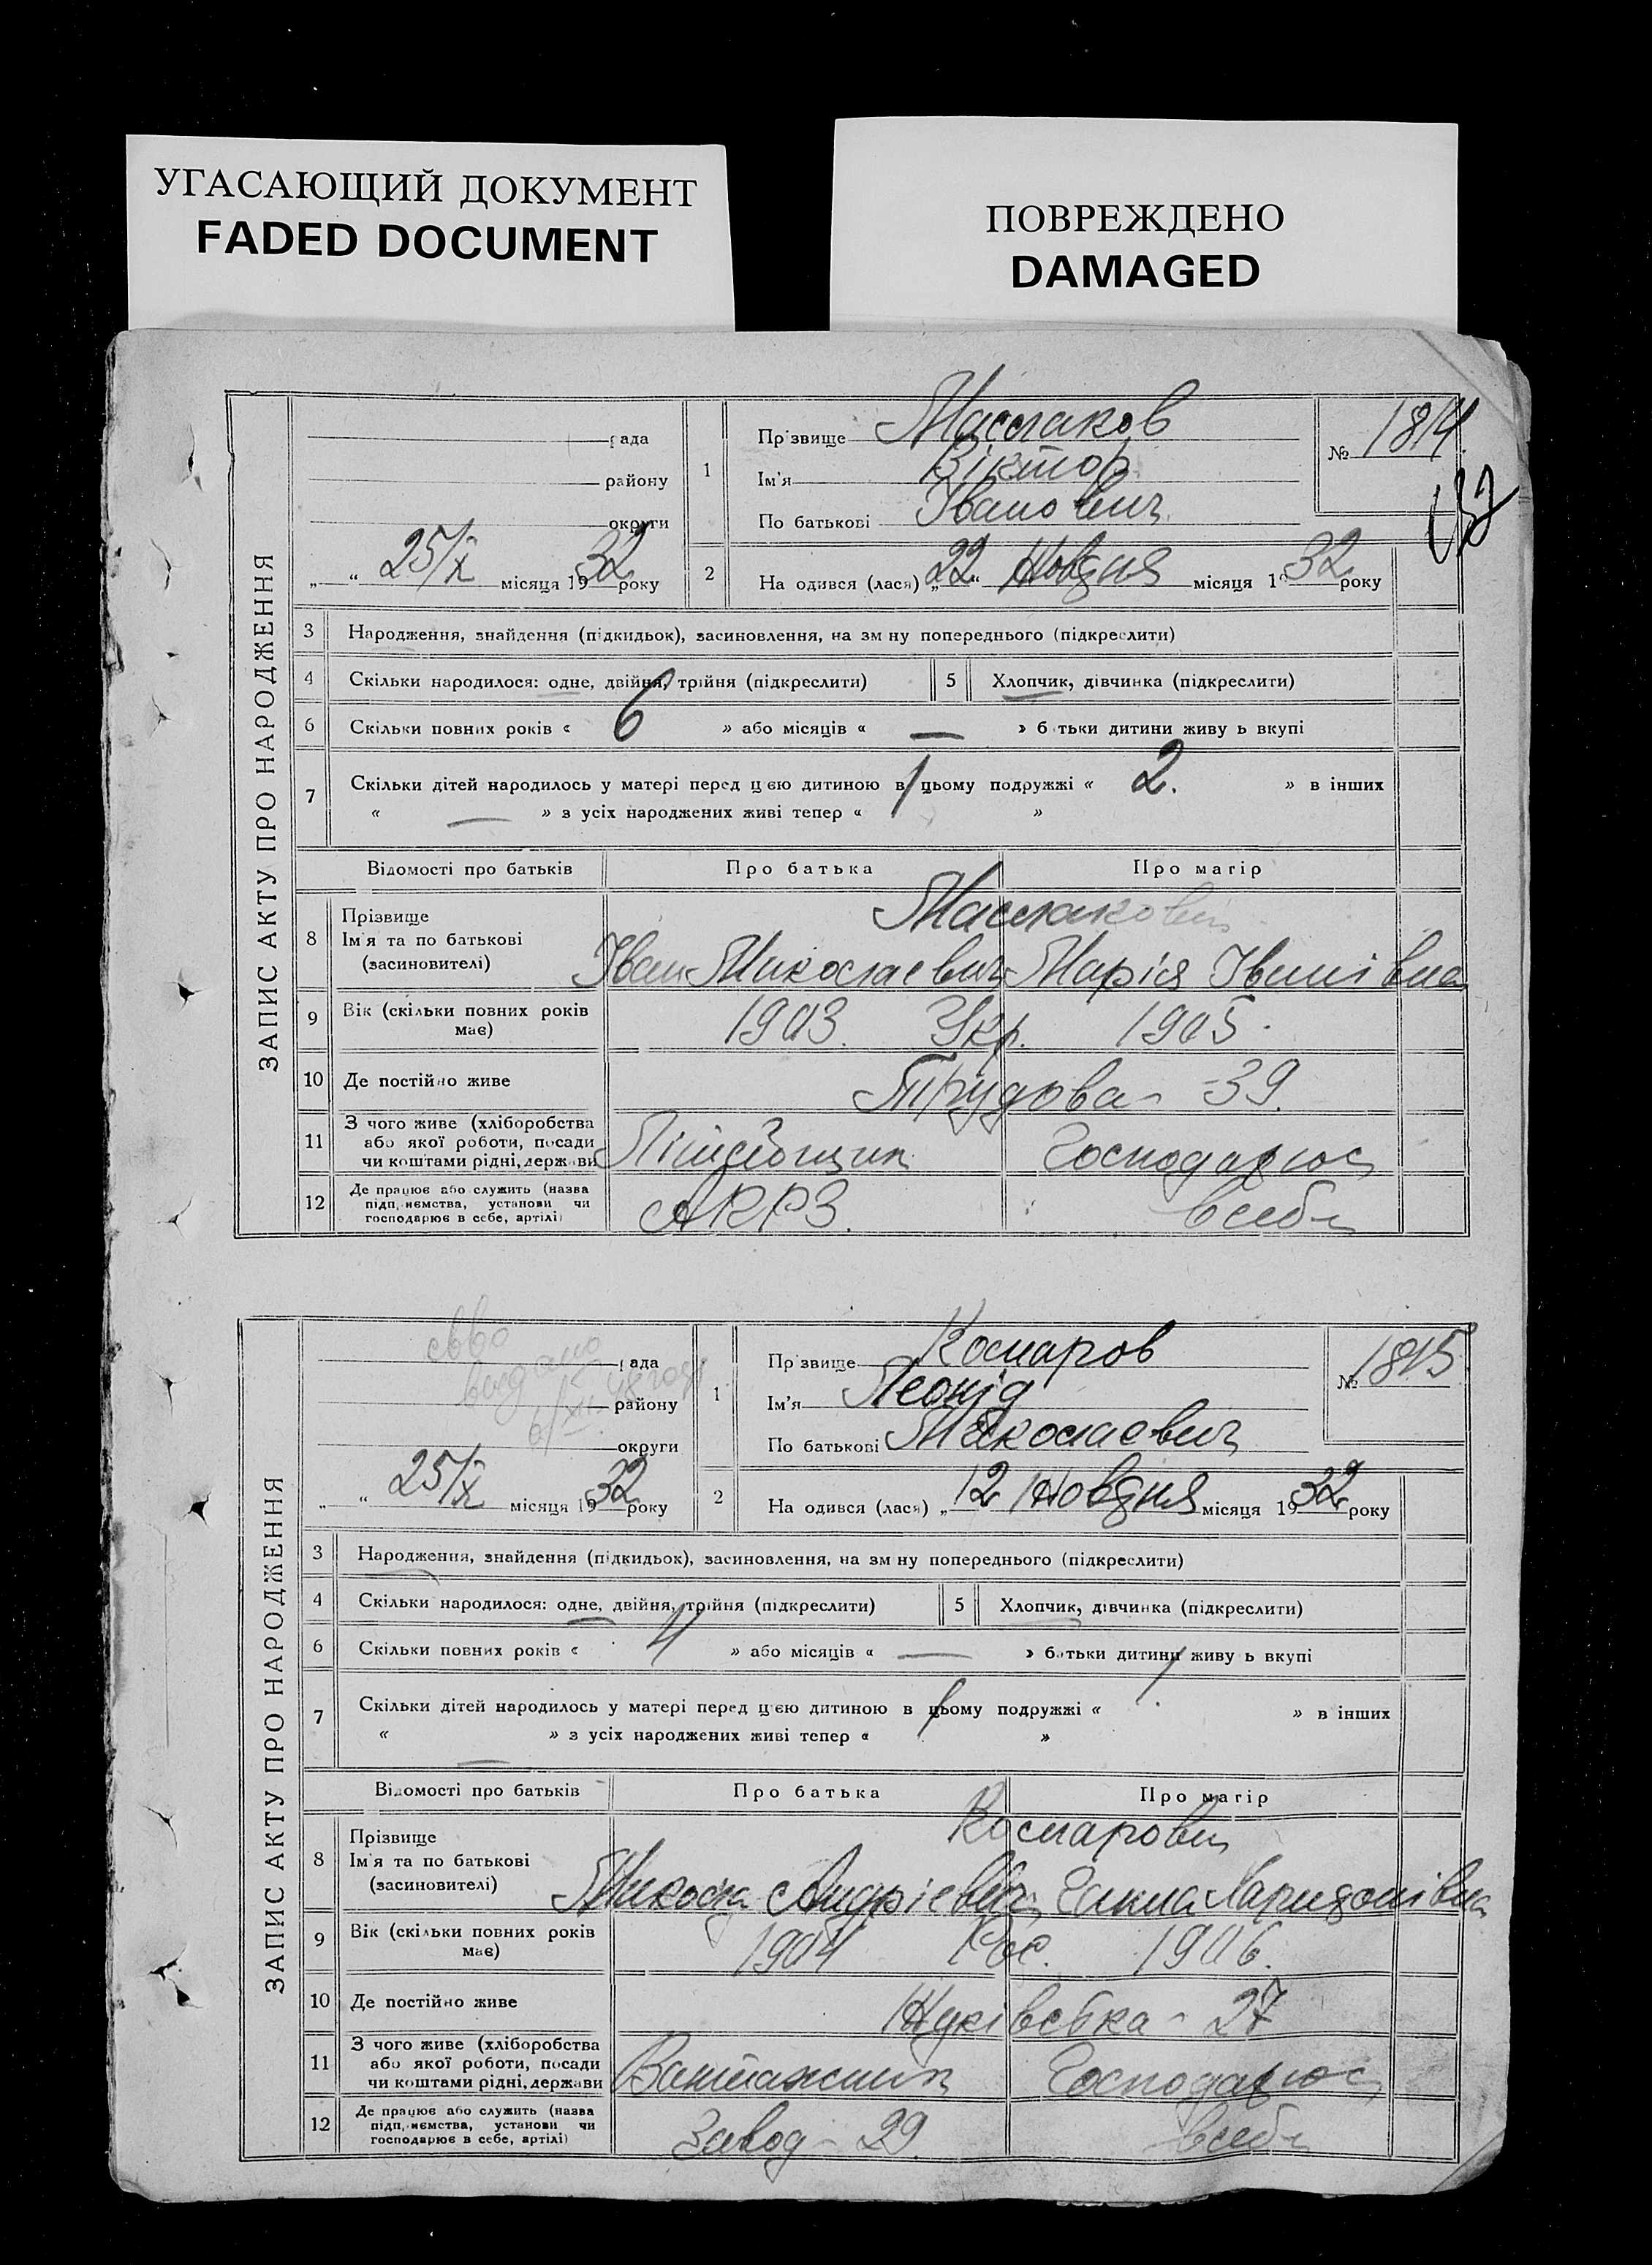 УГАСАЮЩИЙ ДОКУМЕНТ
FADED DOCUMENT
ПОВРЕЖДЕНО
DAMAGED
ЗАПИС АКТУ ПРО НАРОДЖЕННЯ
рада
району
округи
„ “ 25/X місяця 1932 року
1
Прізвище Маслаков
Ім'я Віктор
По батькові Іванович
№ 1814
2
На одився (лася) „22“ Жовтня місяця 1932 року
3 Народження, знайдення (підкидьок), засиновлення, на зм ну попереднього (підкреслити)
4 Скільки народилося: одне, двійня, трійня (підкреслити)
5 Хлопчик, дівчинка (підкреслити)
6 Скільки повних років « 6 » або місяців « — » б тьки дитини живу ь вкупі
7 Скільки дітей народилось у матері перед цією дитиною в цьому подружжі « 2. » в інших
« — » з усіх народжених живі тепер « 1 »
Відомості про батьків Про батька Про матір
8 Прізвище
Ім'я та по батькові
(засиновителі)
Маслакови
Іван Миколаевич Марія Іванівна
9 Вік (скільки повних років має) 1903. Укр. 1905.
10 Де постійно живе Трудова - 39.
11 З чого живе (хліборобства
або якої роботи, посади
чи коштами рідні, держави
Господарює
12 Де працює або служить (назва
підп,иємства, установи чи
господарює в себе, артілі)
всебе
ЗАПИС АКТУ ПРО НАРОДЖЕННЯ
рада
району
округи
видано
„ “ 25/X місяця 1932 року
1
Прізвище Комаров
Ім'я Леонід
По батькові Миколаевич
№ 1815
2
На одився (лася) „12 Жовтня місяця 1932 року
3 Народження, знайдення (підкидьок), засиновлення, на зм ну попереднього (підкреслити)
4 Скільки народилося: одне, двійня, трійня (підкреслити)
5 Хлопчик, дівчинка (підкреслити)
6 Скільки повних років « 4 » або місяців « — » батьки дитини живу ь вкупі
7 Скільки дітей народилось у матері перед цією дитиною в цьому подружжі « 1 » в інших
« — » з усіх народжених живі тепер « 1 »
Відомості про батьків Про батька Про матір
8 Прізвище
Ім'я та по батькові
(засиновителі)
Комарови
Микола Андрієвич Ганна Ларидонівна
9 Вік (скільки повних років має) 1904 Рос. 1906.
10 Де постійно живе - 27
11 З чого живе (хліборобства
або якої роботи, посади
чи коштами рідні, держави
Вантажник Господарює
12 Де працює або служить (назва
підп,иємства, установи чи
господарює в себе, артілі)
Завод - 29. всебе